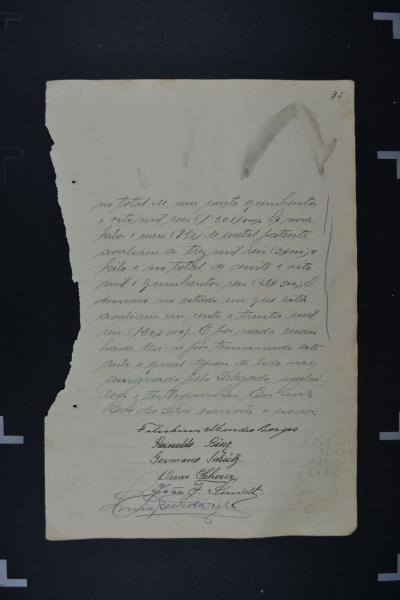 35
no total de um conto quinhentos
e oito mil reis (1:508$000). A nove
kilos e meio (9½) de metal patente
avaliam a trez mil reis (3$000) o
kilo e no total de vinte e oito
mil e quinhentos reis (28$500). O
macaco no estado em que está
avaliam em cento e trinta mil
reis (130$000). E por nada mais
haver deu-se por terminado este
auto o qual depois de lido vae
assignado pelo Delegado, avalia
dores e testemunhas. Eu,
da Silva escrivão o escrevi.
Felisbino Mendes Borges
Reinaldo Bing
Germano Schütz
Oscar Scherer
João F. Smidt
1.508.000
28.500
130.000